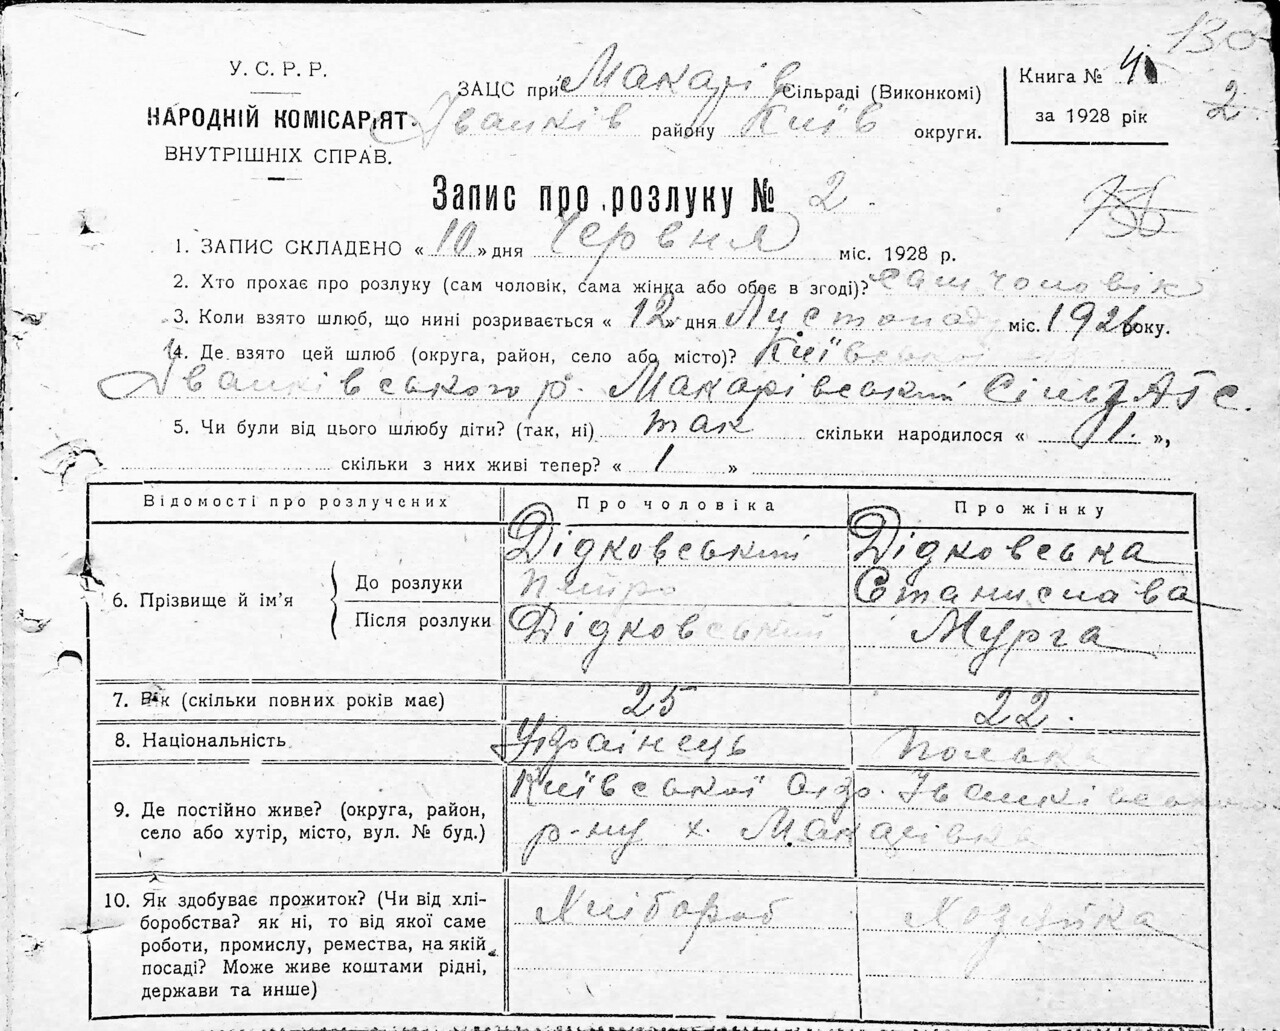 130
2
У. С. Р. Р.
НАРОДНІЙ КОМІСАРІЯТ
ВНУТРІШНІХ СПРАВ.
ЗАЦС при Макарів Сільраді (Виконкомі)
Іванків району Київ округи.
Книга № 4
за 1928 рік
Запис про розлуку № 2.
1. ЗАПИС СКЛАДЕНО « 10 » дня Червня міс. 1928 р.
2. Хто прохає про розлуку (сам чоловік, сама жінка або обоє в згоді)? сам чоловік
3. Коли взято шлюб, що нині розривається « 12 » дня Листопаду міс. 1926 року.
4. Де взято цей шлюб (округа, район, село або місто)? Київської
Іванківського р. Макарівський Сіль
5. Чи були від цього шлюбу діти? (так, ні) так скільки народилося « 1. »,
скільки з них живі тепер? « 1 »
Відомості про розлучених Про чоловіка Про жінку
6. Прізвище й ім'я
До розлуки Дідковський Петро Дідковська Станислава
Після розлуки Дідковський Мурга
7. Вік (скільки повних років має) 25 22.
8. Національність Українець Полька
9. Де постійно живе? (округа, район, Київської Окр. Іванківського
село або хутір, місто, вул. № буд.) р-ну х. Макарівка
10. Як здобуває прожиток? (Чи від хлі- Хлібороб Хозяйка
боробства? як ні, то від якої саме
роботи, промислу, ремества, на якій
посаді? Може живе коштами рідні,
держави та инше)